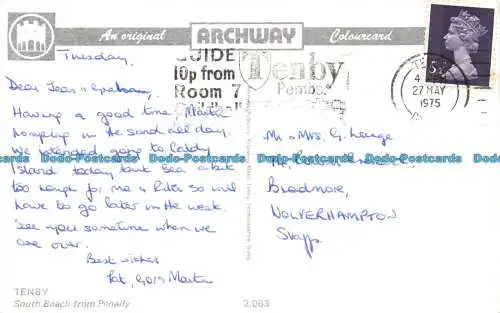 An original ARCHWAY Colourcard
GUIDE
10p from
Room 7
Tenby
Pembs.
4
27 MAY
1975
Tuesday,
Dear Jean & Graham,
Having a good time, Martin
romping in the sand all day.
We intended going to Caldy
Island today but sea a bit
too rough for me & Peter so will
have to go later in the week.
See you sometime when we
are over.
Best wishes
Pat, Martin
Mr & Mrs. G.
Bradmore,
WOLVERHAMPTON
Staffs
TENBY
South Beach from Penally
2.063
Bado-Postcards Bado-Postcards Bado-Postcards Bado-Postcards